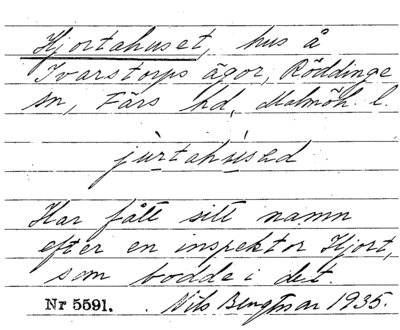 Hjortahuset, hus å
Ivarstorps ägor, Röddinge
sn, Färs hd, Malmöh. l.
jurtahused
Har fått sitt namn
efter en inspektor Hjort,
som bodde i det.
Nr 5591. Nils Bengtsar 1935.